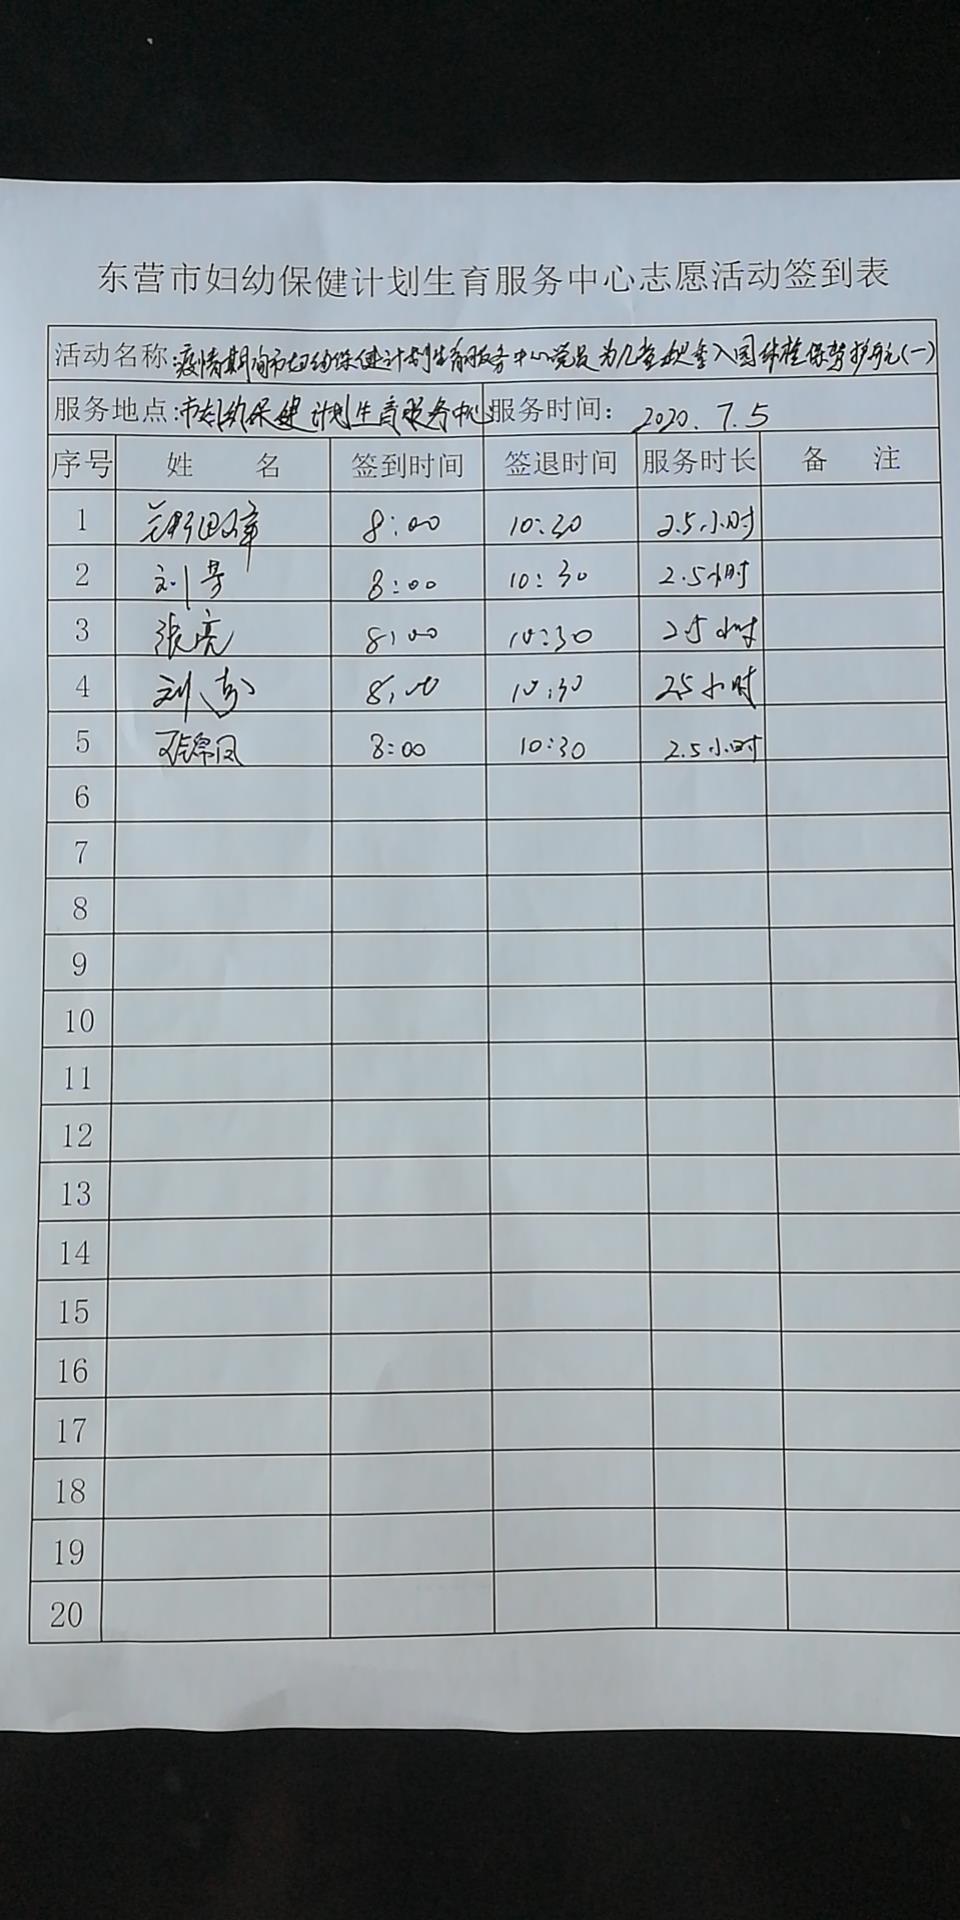 东营市妇幼保健计划生育服务中心志愿活动签到表
活动名称:疫情期间市妇幼保健计划生育服务中心党员为儿童秋季入园体检保驾护航(一)
服务地点:市妇幼保健计划生育服务中心 服务时间: 2020.7.5
序号 姓 名 签到时间 签退时间 服务时长 备 注
1 8:00 10:30 2.5小时
2 刘芳 8:00 10:30 2.5小时
3 张亮 8:00 10:30 2.5小时
4 刘 8:00 10:30 2.5小时
5 8:00 10:30 2.5小时
6
7
8
9
10
11
12
13
14
15
16
17
18
19
20